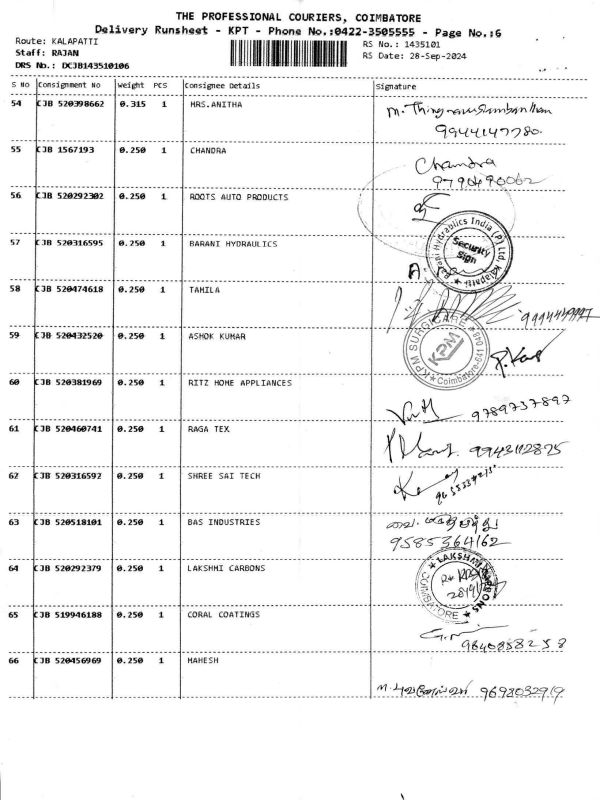 THE PROFESSIONAL COURIERS, COIMBATORE
Delivery Runsheet - KPT - Phone No.:0422-3505555 - Page No.:6
Route: KALAPATTI
RS No.: 1435101
Staff: RAJAN
RS Date: 28-Sep-2024
DRS No.: DCJB143510106
S No Consignment No Weight PCS Consignee Details Signature
54 CJB 520398662 0.315 1 MRS.ANITHA
9944147780
55 CJB 1567193 0.250 1 CHANDRA Chandra
9790490062
56 CJB 520292302 0.250 1 ROOTS AUTO PRODUCTS
57 CJB 520316595 0.250 1 BARANI HYDRAULICS
Barani Hydraulics India (P) Ltd Kalapatti
Security
Sign
58 CJB 520474618 0.250 1 TAMILA
59 CJB 520432520 0.250 1 ASHOK KUMAR
KPM SURGICARE
KPM
Coimbatore-641 048
60 CJB 520381969 0.250 1 RITZ HOME APPLIANCES
9789737897
61 CJB 520460741 0.250 1 RAGA TEX
9943112875
62 CJB 520316592 0.250 1 SHREE SAI TECH
63 CJB 520518101 0.250 1 BAS INDUSTRIES
9585364162
64 CJB 520292379 0.250 1 LAKSHMI CARBONS
LAKSHMI CARBONS
COIMBATORE
65 CJB 519946188 0.250 1 CORAL COATINGS
9640858258
66 CJB 520456969 0.250 1 MAHESH
9698032919